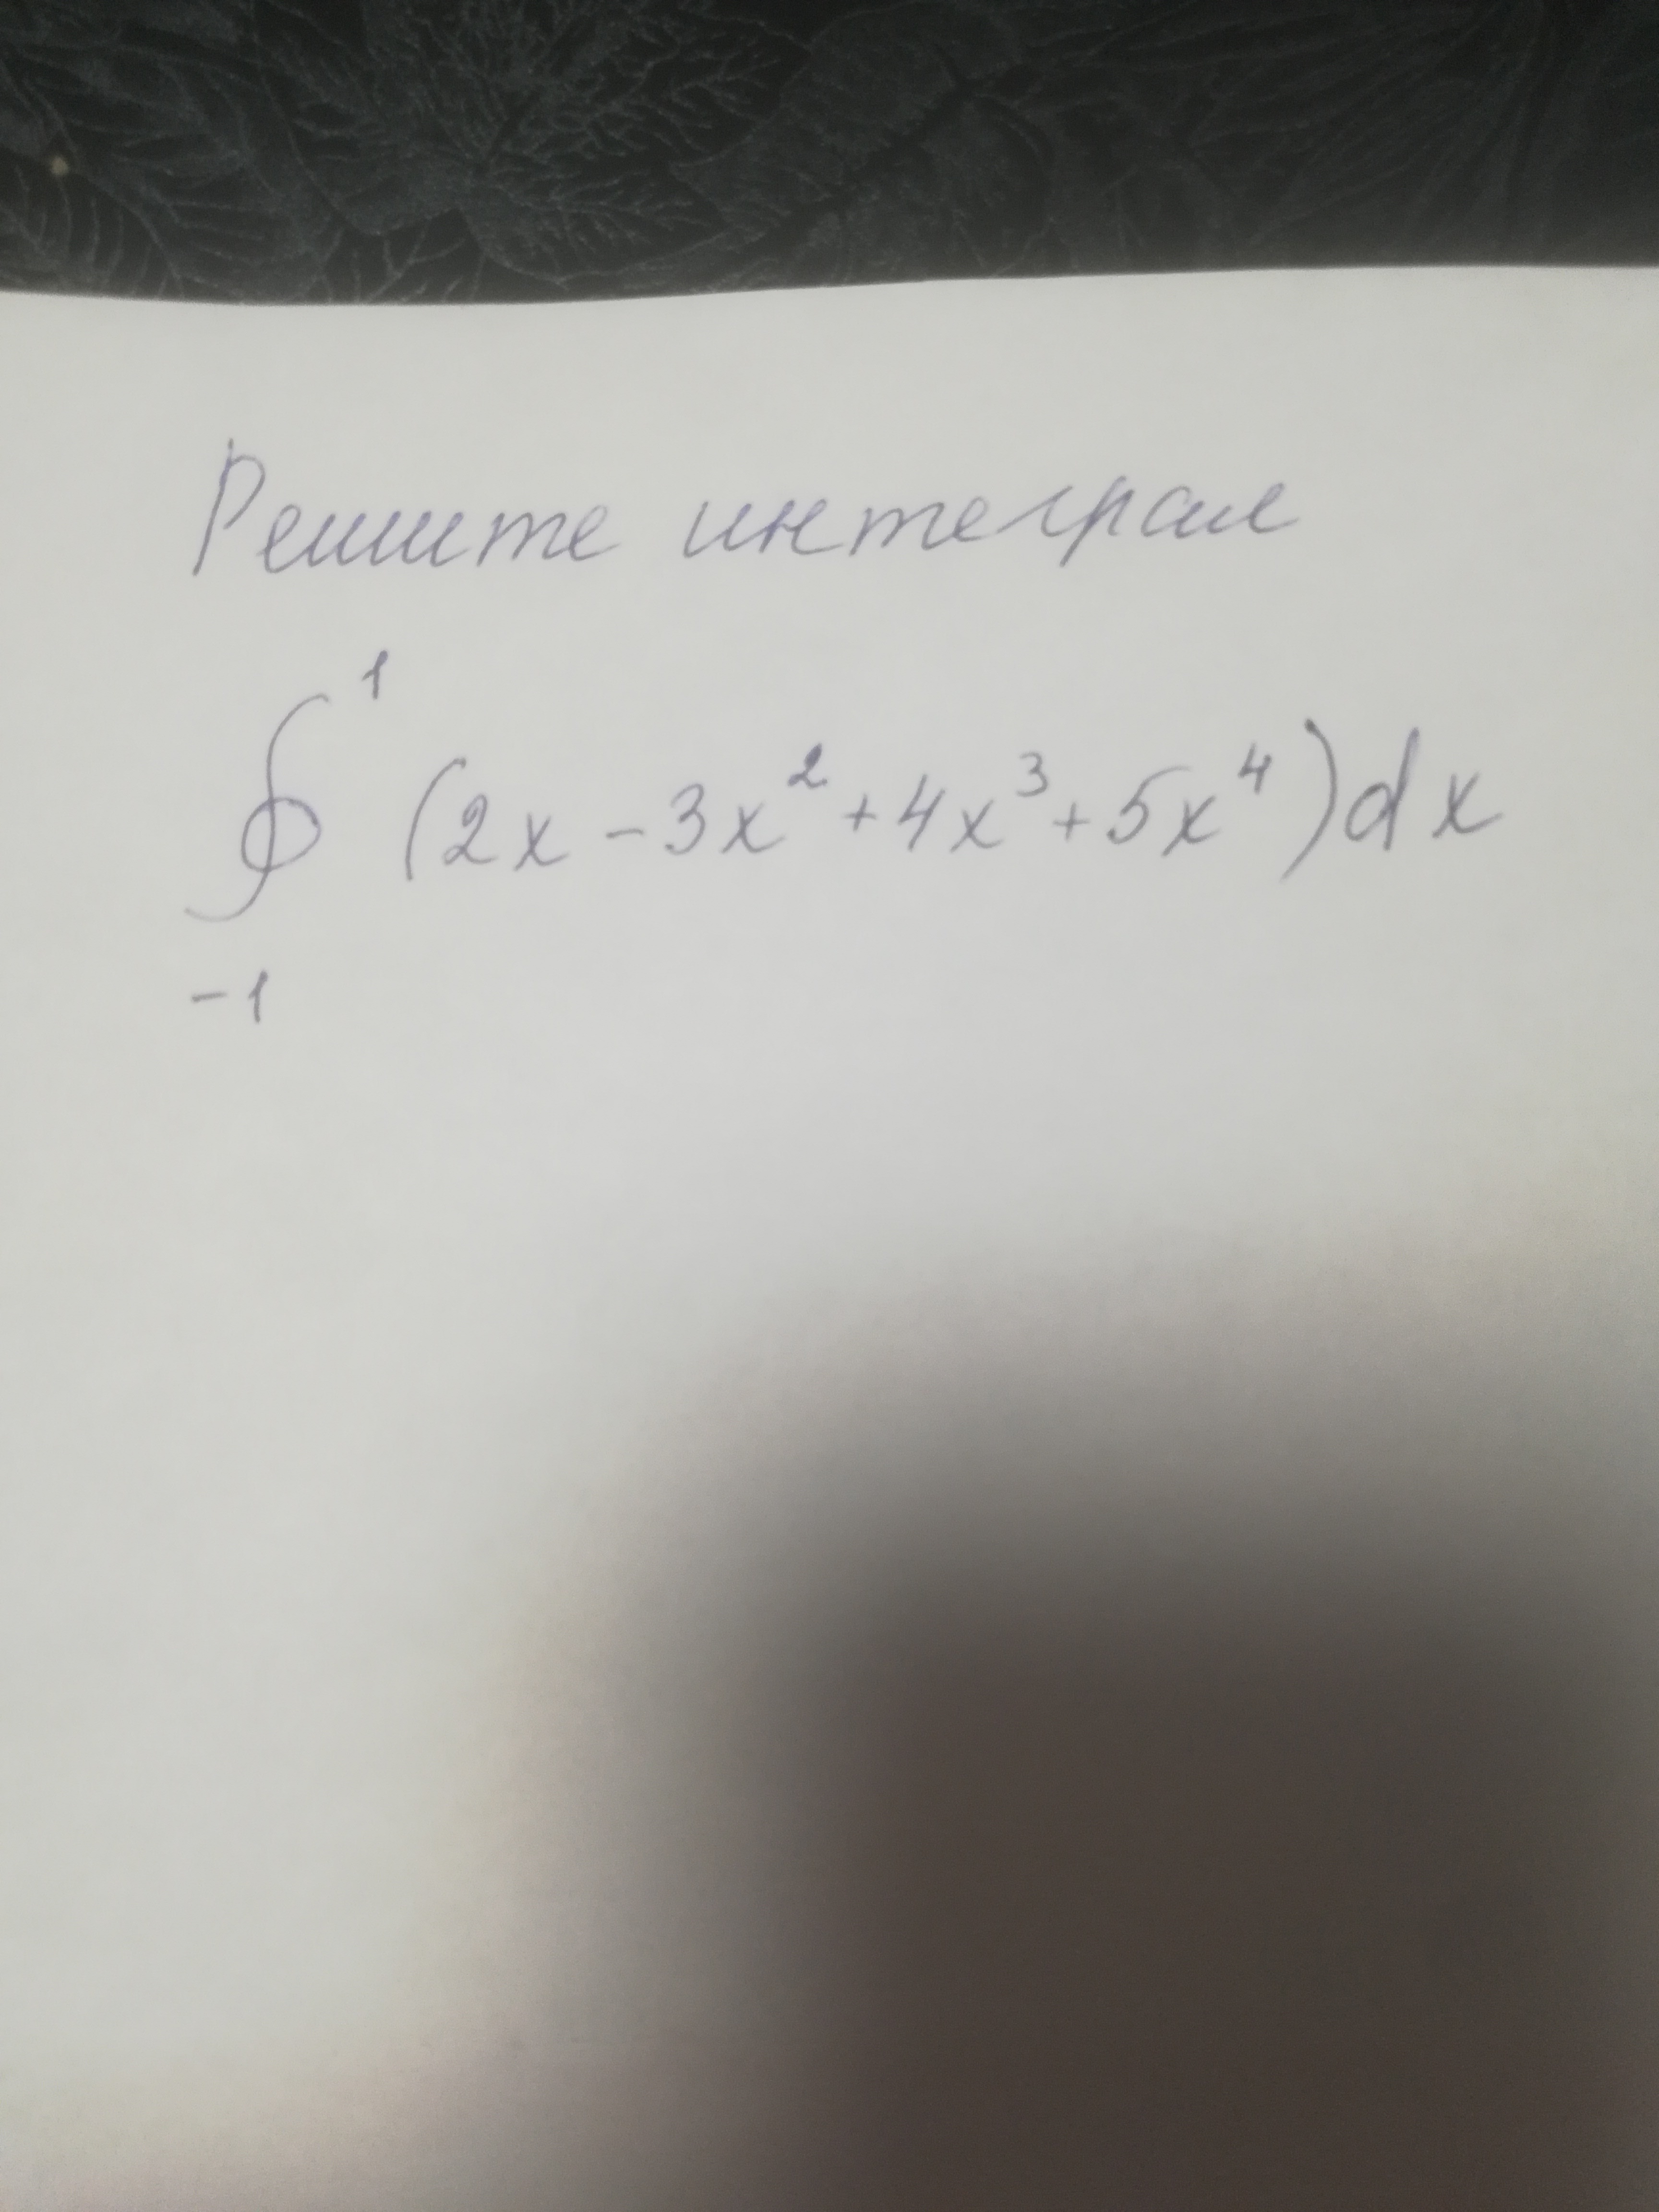 Решите интеграл
1
∮ (2x - 3x² + 4x³ + 5x⁴) dx
-1